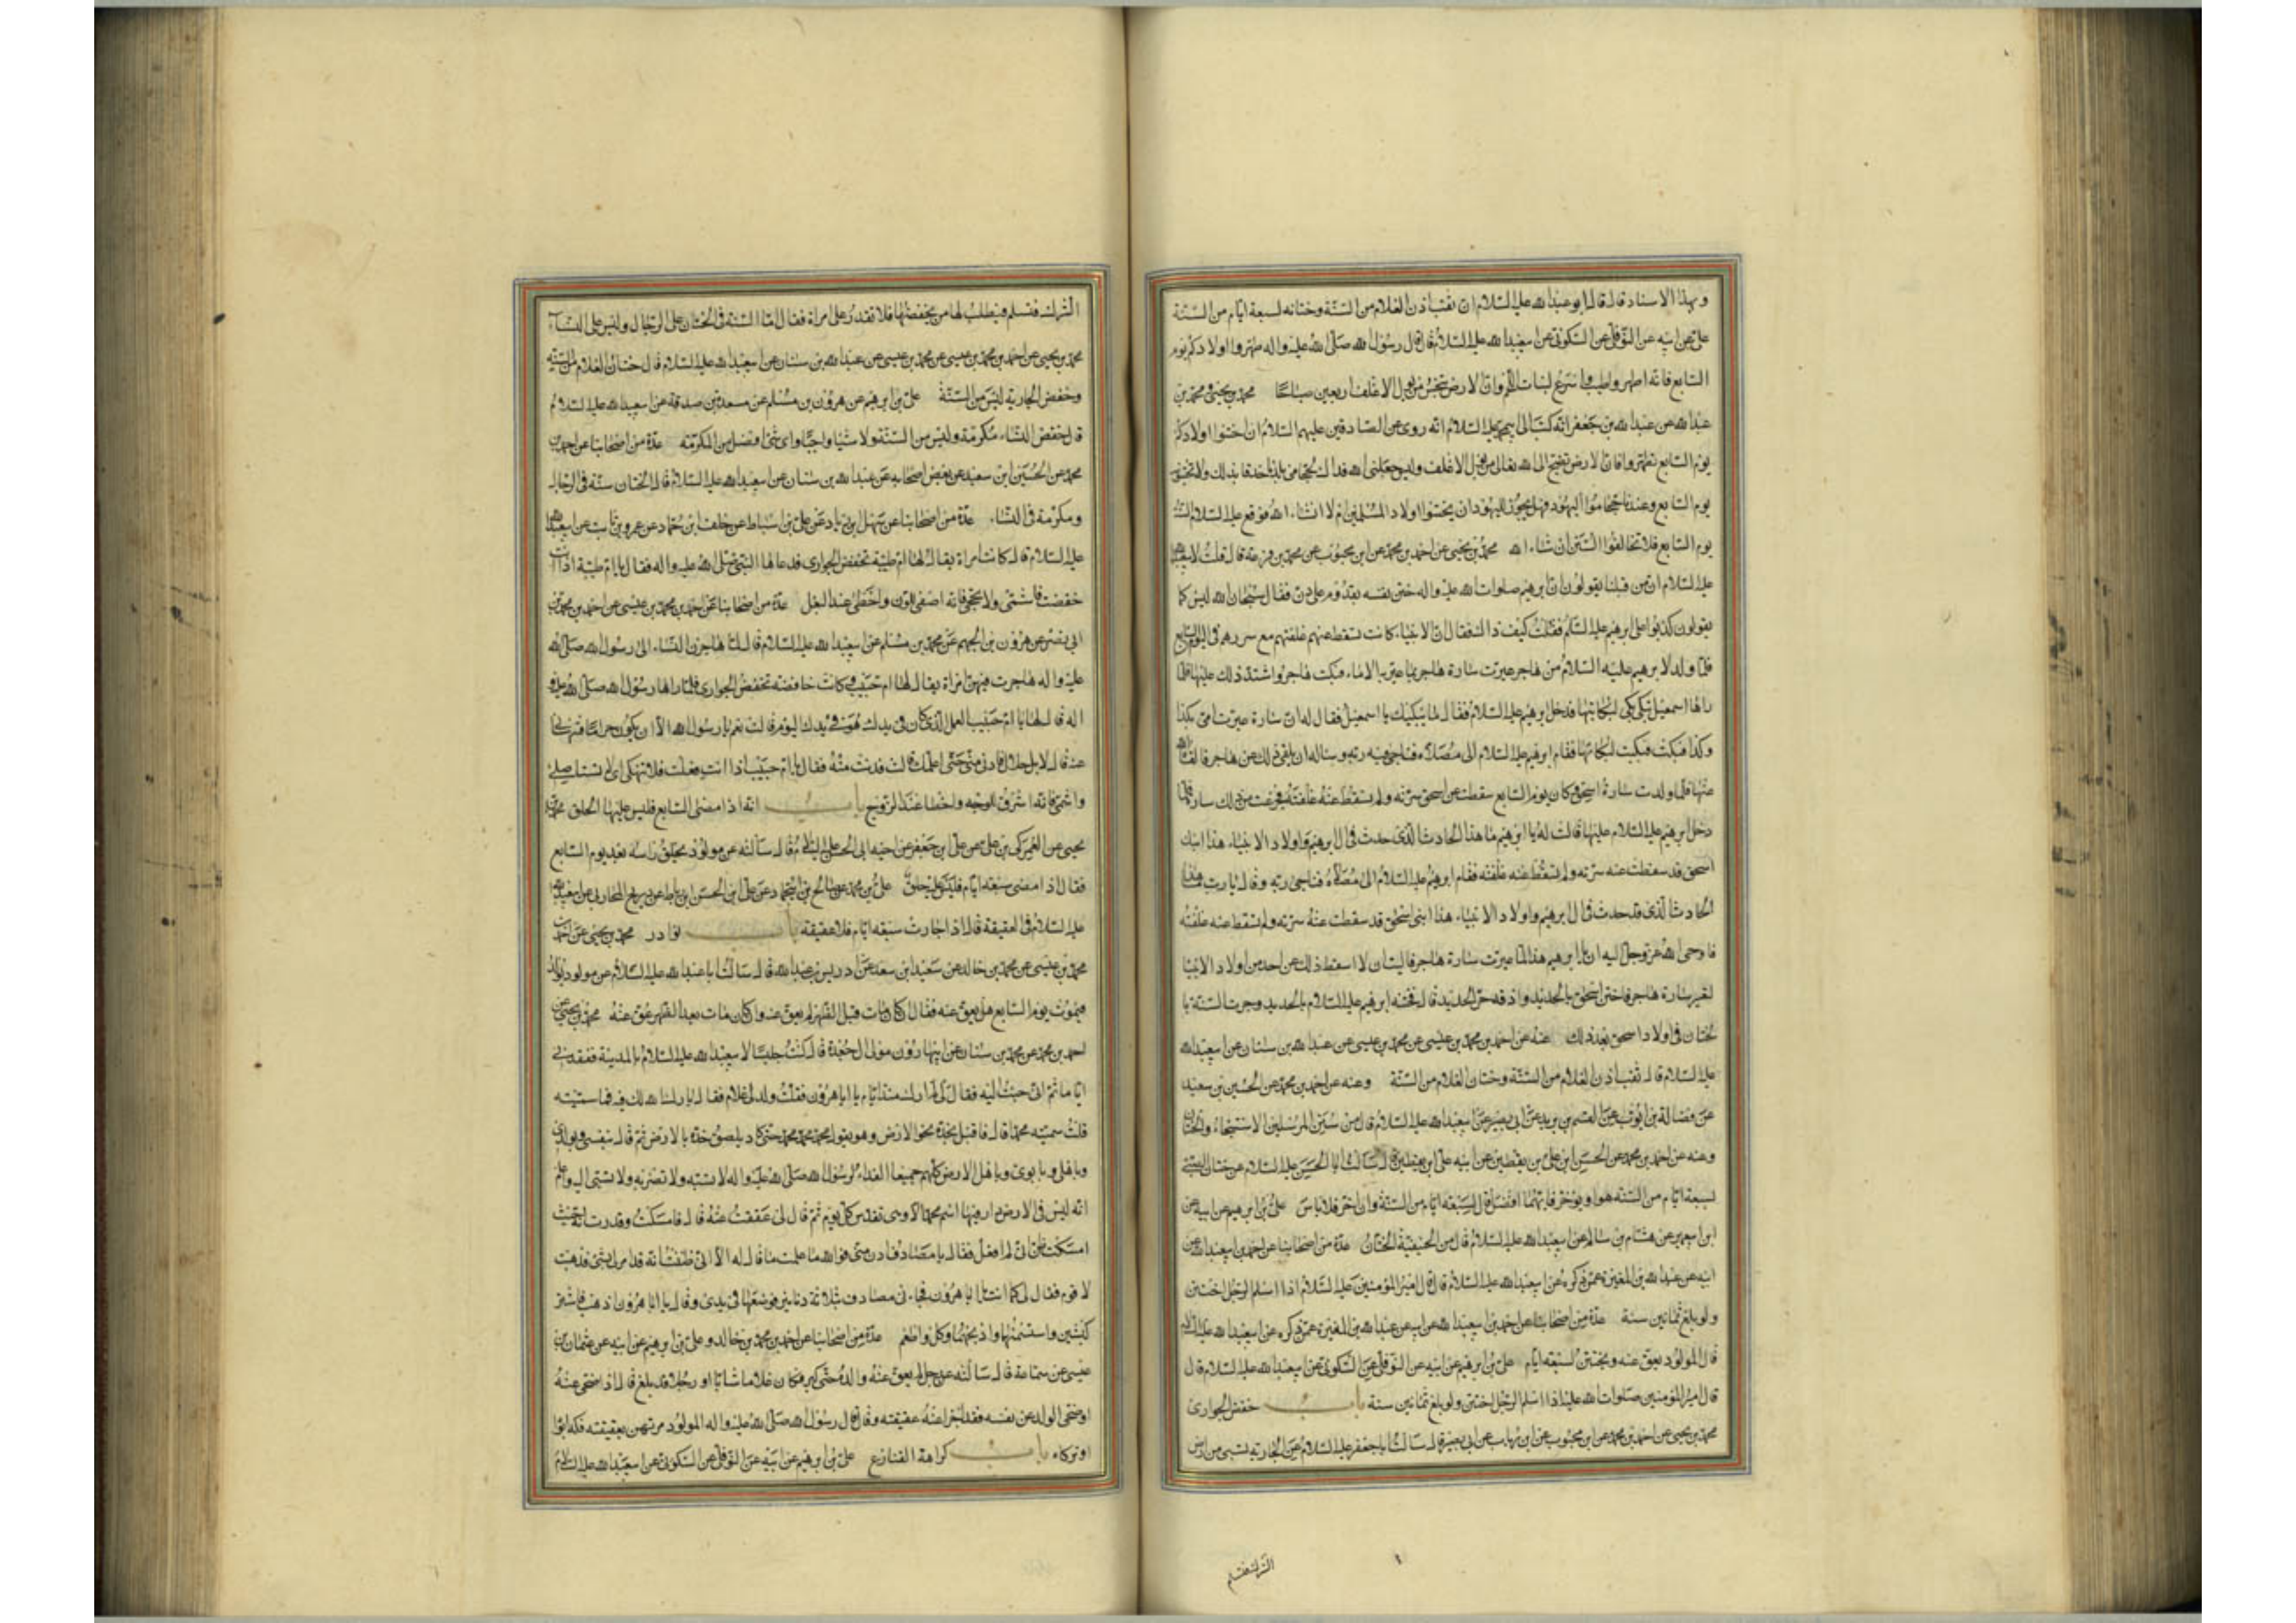 وبهذا الاسناد قال قال ابو عبدالله عليه السلام ان ثقب اذن الغلام من السنة وختانه لسبعة ايام من السنة
علي عن ابيه عن النوفلي عن السكوني عن ابيعبدالله عليه السلام قال قال رسول الله صلى الله عليه واله طهروا اولادكم يوم
السابع فانه اطهر واطيب واسرع لنبات اللحم وان الارض تنجس من بول الاغلف اربعين صباحا محمد بن يحيى ومحمد بن
عبدالله عن عبدالله بن جعفر انه كتب الى ابيمحمد عليه السلام انه روى عن الصادقين عليهم السلام ان اختنوا اولادكم
يوم السابع تطهروا فان الارض تضج الى الله تعالى من بول الاغلف وليس جعلني الله فداك لحجامي بلدنا حذق بذلك ولا يختنونه
يوم السابع وعندنا حجاموا اليهود فهل يجوز لليهود ان يختنوا اولاد المسلمين ام لا انشاء الله فوقع عليه السلام السنة
يوم السابع فلا تخالفوا السنن ان شاء الله محمد بن يحيى عن احمد بن محمد عن ابن محبوب عن محمد بن قزعة قال قلت لابيعبدالله
عليه السلام ان من قبلنا يقولون ان ابرهيم صلوات الله عليه واله ختن نفسه بقدوم على دن فقال سبحان الله ليس كما
يقولون كذبوا على ابرهيم عليه السلم فقلت كيف ذاك فقال ان الانبياء كانت تسقط عنهم غلفتهم مع سررهم في اليوم السابع
فلما ولد لابرهيم عليه السلام من هاجر عيرت سارة هاجر بما عير به الاماء فبكت هاجر واشتد ذلك عليها فلما
راها اسمعيل تبكي بكى لبكائها فدخل ابرهيم عليه السلام فقال ما يبكيك يا اسمعيل فقال له ان سارة عيرت امي بكذا
وكذا فبكت فبكيت لبكائها فقام ابرهيم عليه السلام الى مصلاه فناجى فيه ربه وساله ان يلقي ذلك عن هاجر فالقاه الله
عنها فلما ولدت سارة اسحق وكان يوم السابع سقطت عن اسحق سرته ولم تسقط عنه غلفته فجزعت من ذلك سارة فلما
دخل ابرهيم عليه السلام عليها قالت له يا ابرهيم ما هذا الحادث الذي حدث في ال ابرهيم واولاد الانبياء هذا ابنك
اسحق قد سقطت عنه سرته ولم تسقط عنه غلفته فقام ابرهيم عليه السلام الى مصلاه فناجى ربه وقال يا رب ما هذا
الحادث الذي قد حدث في ال ابرهيم واولاد الانبياء هذا ابني اسحق قد سقطت عنه سرته ولم تسقط عنه غلفته
فاوحى الله عز وجل اليه ان يا ابرهيم هذا لما عيرت سارة هاجر فاليت ان لا اسقط ذلك عن احد من اولاد الانبياء
لتعيير سارة هاجر فاختن اسحق بالحديد واذقه حر الحديد قال فختنه ابرهيم عليه السلام بالحديد وجرت السنة با
لختان في اولاد اسحق بعد ذلك عنه عن احمد بن محمد عن محمد بن عيسى عن عبدالله بن سنان عن ابيعبدالله
عليه السلام قال ثقب اذن الغلام من السنة وختان الغلام من السنة وعنه عن احمد بن محمد عن الحسين بن سعيد
عن فضالة بن ايوب عن القسم بن بريد عن ابي بصير عن ابيعبدالله عليه السلام قال من سنن المرسلين الاستنجاء والختان
وعنه عن احمد بن محمد عن الحسن ابن علي بن يقطين عن ابيه علي ابن يقطين قال سالت ابا الحسن عليه السلام عن ختان الصبي
لسبعة ايام من السنة هو او يؤخر فايهما افضل قال لسبعة ايام من السنة وان اخر فلا باس علي بن ابرهيم عن ابيه عن
ابن ابيعمير عن هشام بن سالم عن ابيعبدالله عليه السلام قال من الحنيفية الختان عدة من اصحابنا عن احمد بن ابيعبدالله عن
ابيه عن عبدالله بن المغيرة عمن ذكره عن ابيعبدالله عليه السلام قال قال امير المؤمنين عليه السلام اذا اسلم الرجل اختتن
ولو بلغ ثمانين سنة عدة من اصحابنا عن احمد بن ابيعبدالله عن ابيه عن عبدالله بن المغيرة عمن ذكره عن ابيعبدالله عليه السلام
قال المولود يعق عنه ويختتن لسبعة ايام علي بن ابرهيم عن ابيه عن النوفلي عن السكوني عن ابيعبدالله عليه السلام قال
قال امير المؤمنين صلوات الله عليه اذا اسلم الرجل اختتن ولو بلغ ثمانين سنة باب خفض الجواري
محمد بن يحيى عن احمد بن محمد عن ابن محبوب عن ابن رئاب عن ابي بصير قال سالت ابا جعفر عليه السلام عن الجارية تسبى من ارض
الشرك فتسلم
الشرك فتسلم فيطلب لها من يخفضها فلا تقدر على امراة فقال اما السنة في الختان على الرجال وليس على النساء
محمد بن يحيى عن احمد بن محمد بن عيسى عن محمد بن عيسى عن عبدالله بن سنان عن ابيعبدالله عليه السلام قال ختان الغلام من السنة
وخفض الجارية ليس من السنة علي بن ابرهيم عن هرون بن مسلم عن مسعدة بن صدقة عن ابيعبدالله عليه السلام
قال خفض النساء مكرمة وليس من السنة ولا شيئا واجبا واي شئ افضل من المكرمة عدة من اصحابنا عن احمد بن
محمد عن الحسين ابن سعيد عن بعض اصحابه عن عبدالله بن سنان عن ابيعبدالله عليه السلام قال الختان سنة في الرجال
ومكرمة في النساء عدة من اصحابنا عن سهل بن زياد عن علي بن اسباط عن خلف ابن حماد عن عمرو بن ثابت عن ابيعبدالله
عليه السلام قال كانت امراة يقال لها ام طيبة تخفض الجواري فدعاها النبي صلى الله عليه واله فقال يا ام طيبة اذا انت
خفضت فاشمي ولا تجحفي فانه اصفى للون واحظى عند البعل عدة من اصحابنا عن احمد بن محمد بن عيسى عن احمد بن محمد بن
ابي نصر عن هرون بن الجهم عن محمد بن مسلم عن ابيعبدالله عليه السلام قال لما هاجرن النساء الى رسول الله صلى الله
عليه واله هاجرت فيهن امراة يقال لها ام حبيب وكانت خافضة تخفض الجواري فلما راها رسول الله صلى الله عليه و
اله قال لها يا ام حبيب العمل الذي كان في يدك هو في يدك اليوم قالت نعم يا رسول الله الا ان يكون حراما فتنهاني
عنه قال لا بل حلال فادني مني حتى اعلمك قالت فدنت منه فقال يا ام حبيب اذا انت فعلت فلا تنهكي اي لا تستاصلي
واشمي فانه اشرق للوجه واحظا عند الزوج باب انه اذا مضى السابع فليس عليها الحلق محمد بن
يحيى عن العمركي بن علي عن علي ابن جعفر عن اخيه ابي الحسن عليه السلام قال سالته عن مولود يحلق راسه بعد يوم السابع
فقال اذا مضى سبعة ايام فليس عليه حلق
عليه السلام في العقيقة قال اذا جازت سبعة ايام فلا عقيقة باب نوادر محمد بن يحيى عن احمد بن
محمد بن عيسى عن محمد بن خالد عن سعيد ابن سعد عن ادريس بن عبدالله قال سالت ابا عبدالله عليه السلام عن مولود يولد
فيموت يوم السابع هل يعق عنه فقال ان كان مات قبل الظهر لم يعق عنه وان كان مات بعد الظهر عق عنه محمد بن يحيى عن
احمد بن محمد عن محمد بن سنان عن ابيهارون مولى ال جعدة قال كنت جليسا لابيعبدالله عليه السلام بالمدينة ففقدني
اياما ثم اني جئت اليه فقال لي لم ارك منذ ايام يا ابا هرون فقلت ولد لي غلام فقال بارك الله لك فيه فما سميته
قلت سميته محمدا قال فاقبل بخده نحو الارض وهو يقول محمد محمد محمد حتى كاد يلصق خده بالارض ثم قال بنفسي وبولدي
وباهلي وبابوي وباهل الارض كلهم جميعا الفداء لرسول الله صلى الله عليه واله لا تسبه ولا تضربه ولا تسئ اليه واعلم
انه ليس في الارض دار فيها اسم محمد الا وهي تقدس كل يوم ثم قال لي عققت عنه قال فامسكت وقد رأني حيث
امسكت ظن اني لم افعل فقال يا مصادف ادن مني فوالله ما علمت ما قال له الا اني ظننت انه قد امر لي بشئ فذهبت
لاقوم فقال لي كما انت يا ابا هرون فجاءني مصادف بثلاثة دنانير فوضعها في يدي وقال يا ابا هرون اذهب فاشتر
كبشين واستسمنهما واذبحهما وكل واطعم عدة من اصحابنا عن احمد بن محمد بن خالد وعلي بن ابرهيم عن ابيه عن عثمان بن
عيسى عن سماعة قال سالته عن رجل لم يعق عنه والده حتى كبر فكان غلاما شابا او رجلا قد بلغ قال اذا ضحى عنه
او ضحى الولد عن نفسه فقد اجزا عنه عقيقته وقال قال رسول الله صلى الله عليه واله المولود مرتهن بعقيقته فكه ابواه
او تركاه باب كراهة القنازع علي بن ابرهيم عن ابيه عن النوفلي عن السكوني عن ابيعبدالله عليه السلام